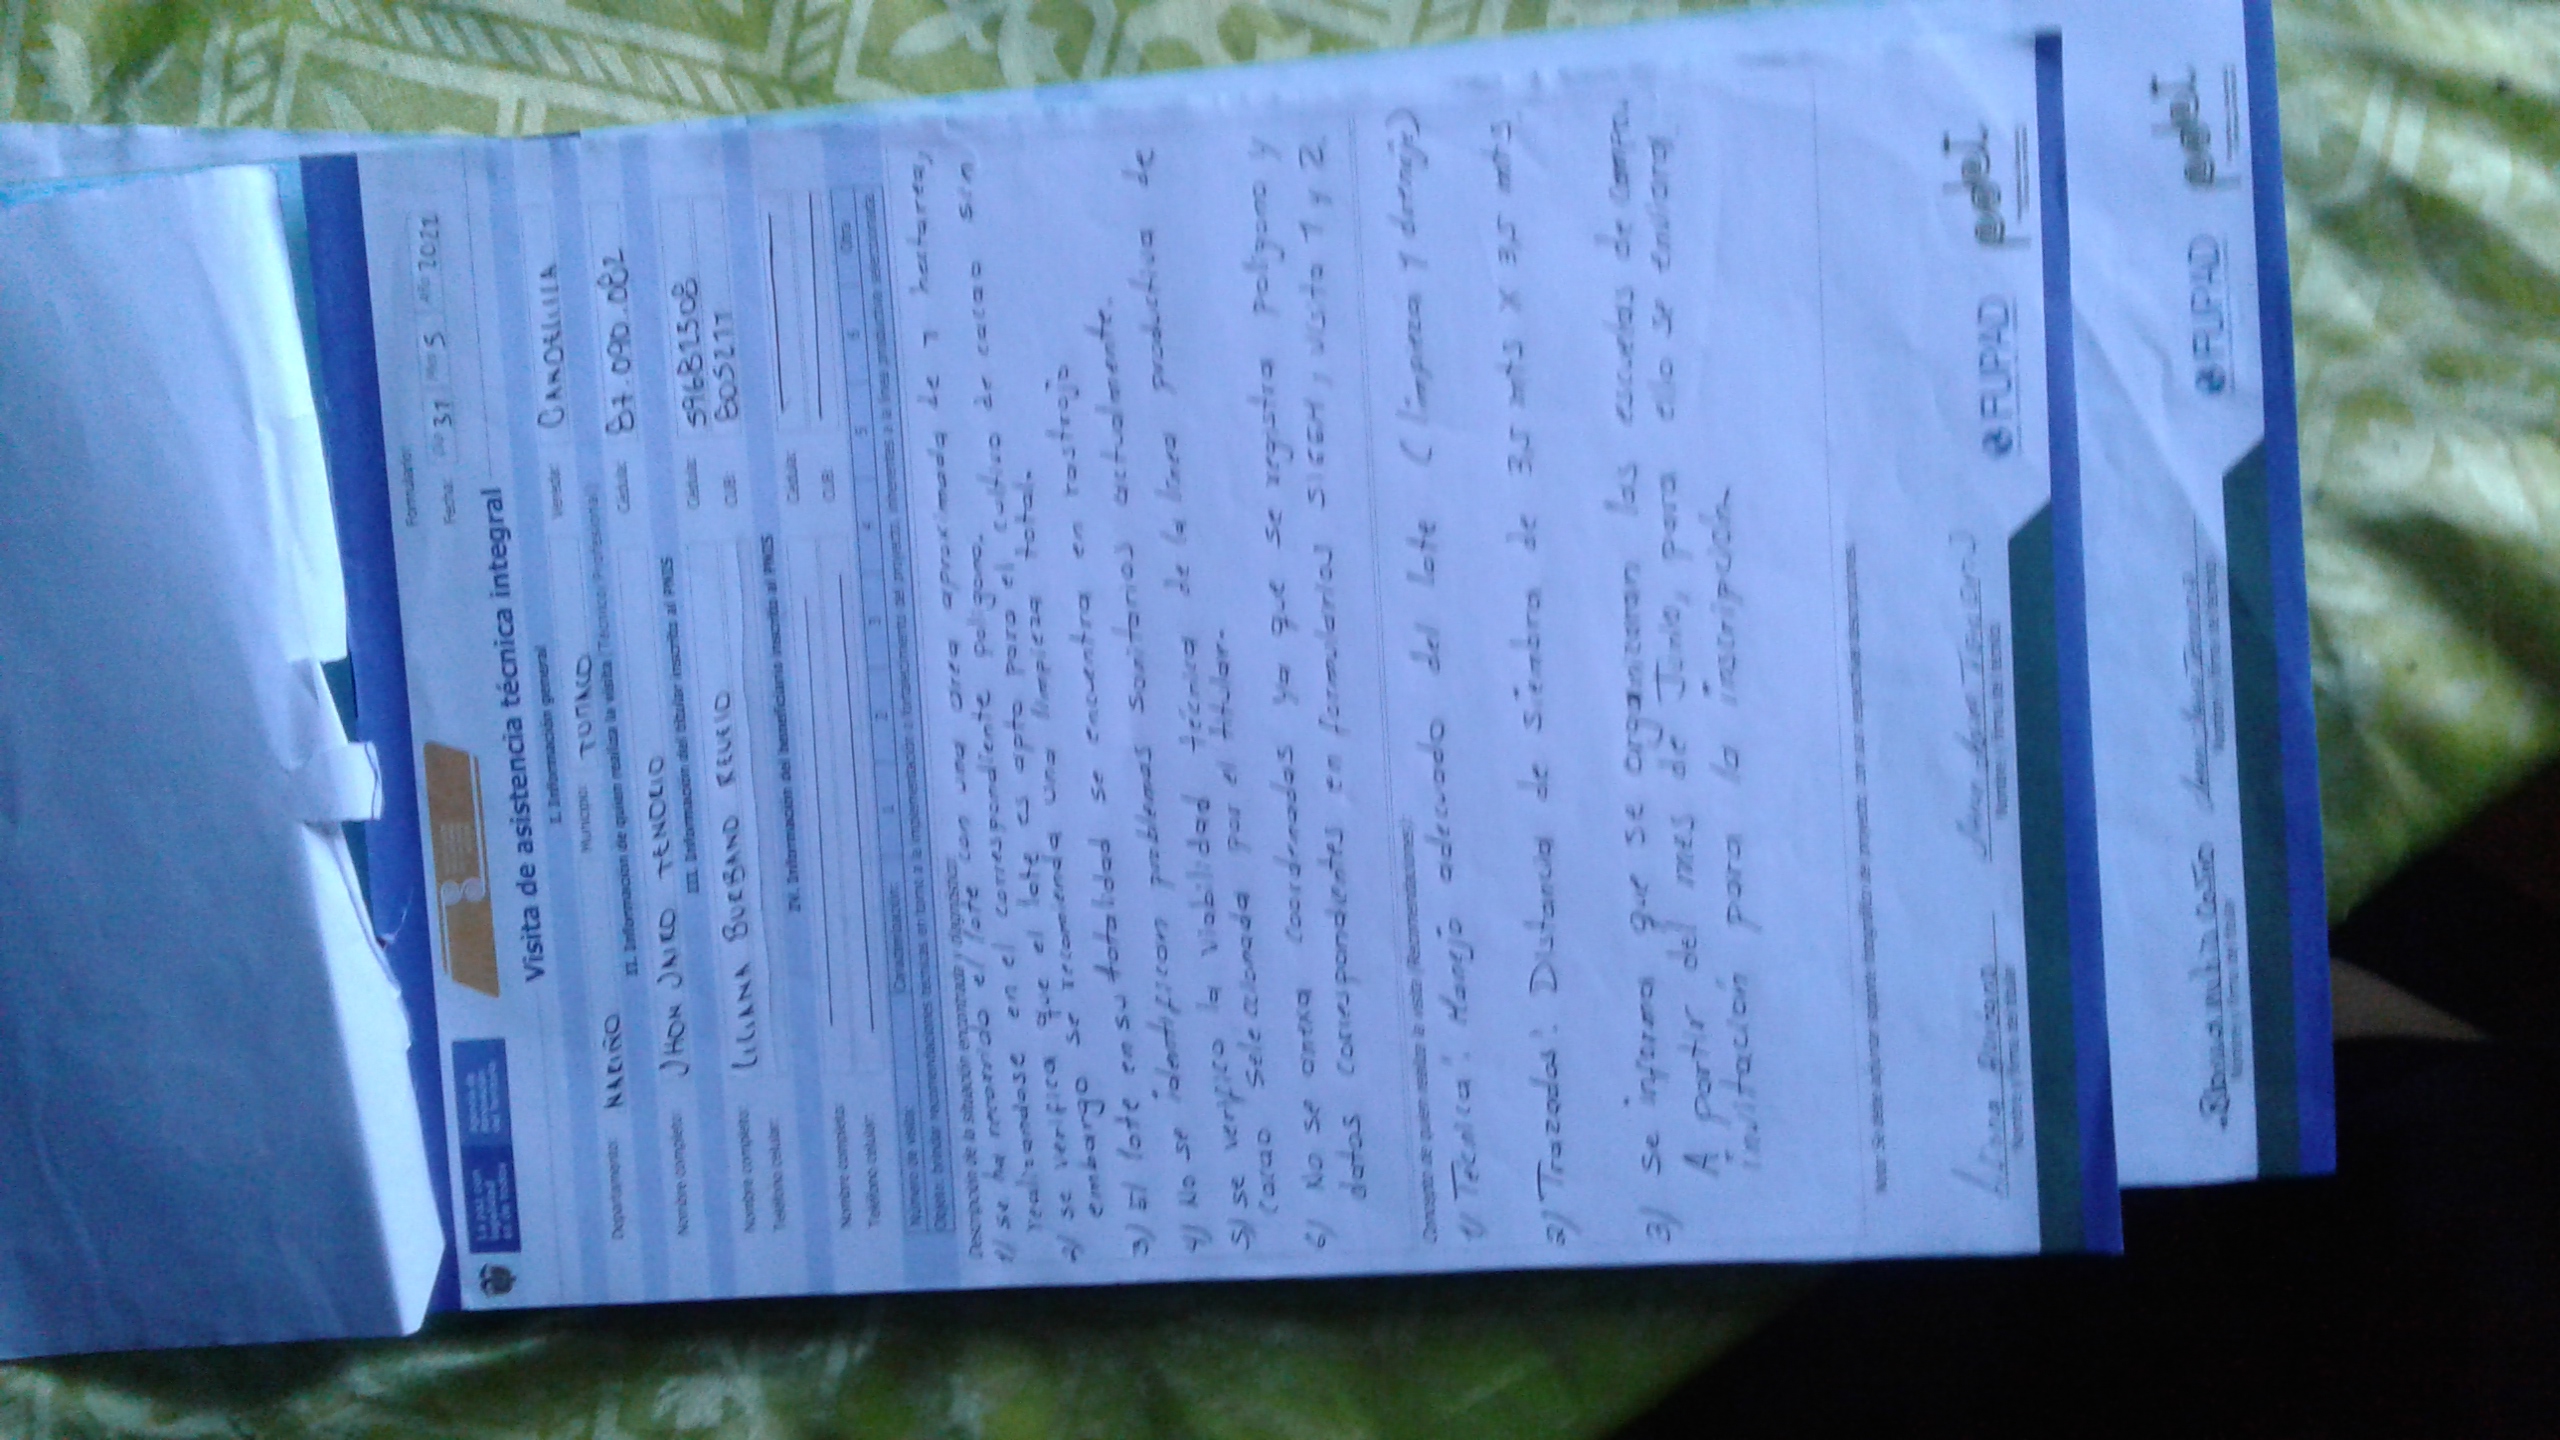 Formulario:
Fecha: Día 31 Mes 5 Año 2021
La paz con legalidad es de todos
Visita de asistencia técnica integral
I. Información general
Departamento: NARIÑO Municipio: TUMACO Vereda: CANDELILLA
II. Información de quien realiza la visita (Técnico/Profesional)
Nombre completo: JHON JAIRO TENORIO Cédula: 87.090.082
III. Información del titular inscrito al PNIS
Nombre completo: LILIANA BURBANO REVELO Cédula:
Teléfono celular: CUB:
IV. Información del beneficiario inscrito al PNIS
Nombre completo: Cédula:
Teléfono celular: CUB:
Número de visita: Caracterización: 1 2 3 4 5 6 Otra
Objeto: brindar recomendaciones técnicas en torno a la implementación o fortalecimiento del proyecto inherentes a la línea productiva seleccionada
Descripción de la situación encontrada y diagnóstico:
1) se ha recorrido el lote con una area aproximada de 1 hectarea,
realizandose en el correspondiente poligono.
2) se verifica que el lote es apto para el cultivo de cacao sin
embargo se recomienda una limpieza total.
3) El lote en su totalidad se encuentra en rastrojo
4) No se identifican problemas Sanitarios actualmente.
5) se verifico la Viabilidad técnica de la linea productiva de
Cacao Seleccionada por el titular.
6) No se anexa coordenadas ya que se registra poligono y
datos correspondientes en formularios SIGEM, visita 1 y 2.
Concepto de quien realiza la visita (Recomendaciones):
1) Tecnica: Manejo adecuado del lote (limpieza y drenaje)
2) Trazados: Distancia de siembra de 3,5 mts X 3,5 mts
3) Se informa que se organizaran las escuelas de campo.
A partir del mes de Junio, para ello se enviara
invitación para la inscripción.
Nota: Se debe adjuntar soporte fotográfico del proyecto con sus respectivas descripciones.
Liliana Burbano
Nombre y Firma de titular
Nombre y Firma de técnico
FUPAD
Nombre y Firma de titular
Nombre y Firma de técnico
FUPAD